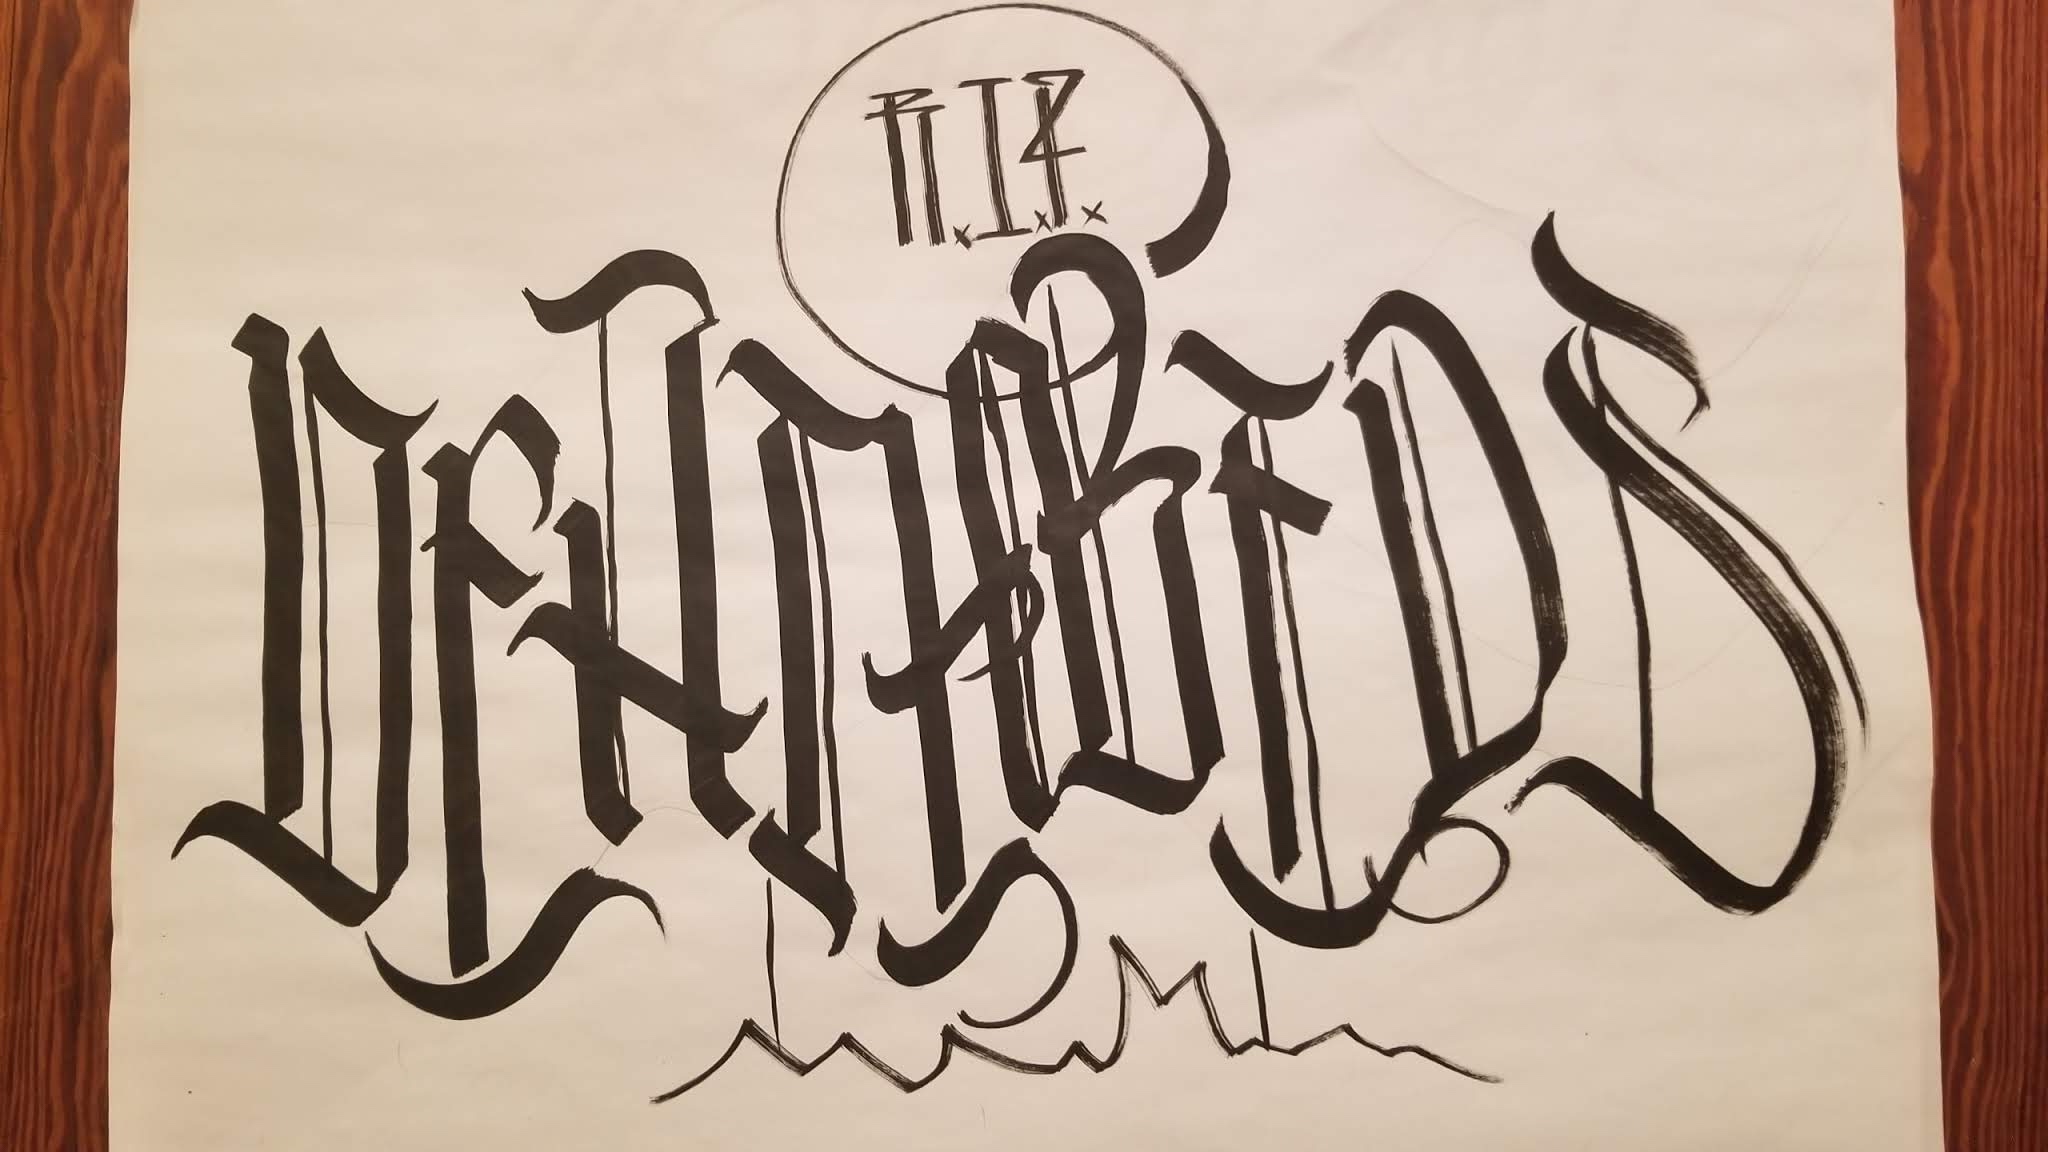 R.I.P.
DEADBEDS